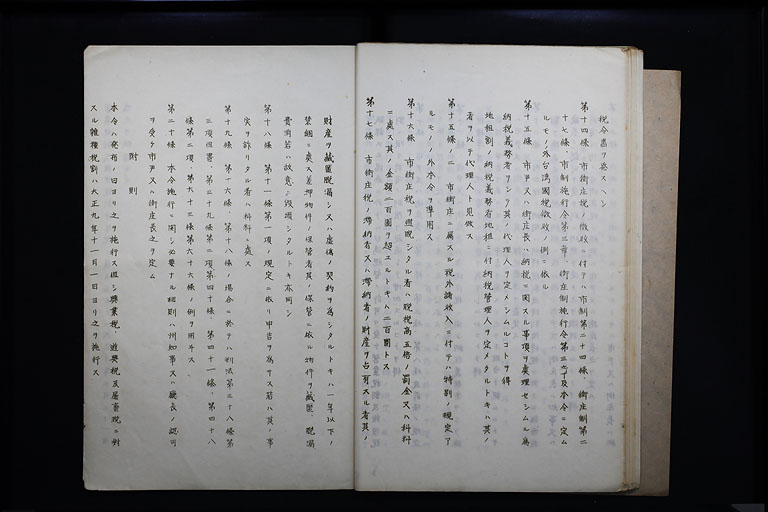 税令書ヲ発スヘシ
第十四條 市街庄税ノ徴收ニ付テハ市制第二十四條、街庄制第二
十七條、市制施行令第三章、街庄制施行令第三章及本令ニ定ム
ルモノノ外台湾國税徴收ノ例ニ依ル
第十五條 市尹又ハ街庄長ハ納税ニ関スル事項ヲ處理セシムル為
納税義務者ヲシテ其ノ代理人ヲ定メシムルコトヲ得
地租割ノ納税義務者地租ニ付納税管理人ヲ定メタルトキハ其ノ
者ヲ以テ代理人ト見做ス
第十五條ノ二 市街庄ニ属スル税外諸收入ニ付テハ特別ノ規定ア
ルモノノ外本令ヲ準用ス
第十六條 市街庄税ヲ逋脱シタル者ハ脱税高五倍ノ罰金又ハ科料
ニ處ス其ノ金額二百圓ヲ超エルトキハ二百圓トス
第十七條 市街庄税ノ滞納者又ハ滞納者ノ財産ヲ占有スル者其ノ
財産ヲ藏匿脱漏シ又ハ虚偽ノ契約ヲ為シタルトキハ一年以下ノ
禁錮ニ處ス差押物件ノ保管者其ノ保管ニ係ル物件ヲ藏匿、脱漏
費消若ハ故意ニ毀損シタルトキ亦同シ
第十八條 第十一條第一項ノ規定ニ依リ申告ヲ為サス若ハ其ノ事
実ヲ詐リタル者ハ科料ニ處ス
第十九條 第十六條、第十八條ノ場合ニ於テハ刑法第三十八條第
三項但書、第三十九條第二項第四十條、第四十一條、第四十八
條第二項、第六十三條第六十六條ノ例ヲ用ヰス
第二十條 本令施行ニ関シ必要ナル細則ハ州知事又ハ廳長ノ認可
ヲ受ケ市尹又ハ街庄長之ヲ定ム
附則
本令ハ発布ノ日ヨリ之ヲ施行ス但シ興業税、遊興税及屠畜税ニ対
スル雑種税割ハ大正九年十一月一日ヨリ之ヲ施行ス